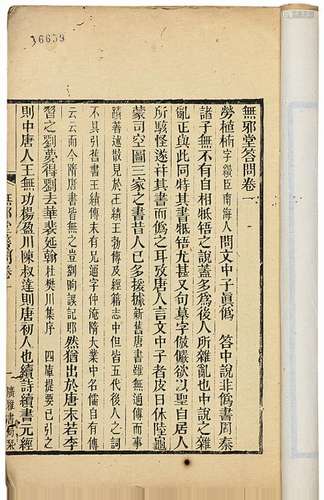 16639
無邪堂答問卷一
勞植楠字緩臣南海人問文中子眞僞 答中說非僞書周秦
諸子無不有自相牴牾之說蓋多爲後人所雜亂也中說之雜
亂正與此同特其書牴牾尤甚又句章字倣儼欲以聖自居人
所駭怪遂幷其書而僞之耳攷唐人言文中子者皮日休陸龜
蒙司空圖三家之書昔人已多援據新舊唐書雖無通傳而事
蹟著述散見於王績王勃傳及經籍志中但皆五代後人之詞
不具引舊書王績傳末有兄通字仲淹隋大業中名儒自有傳
云云而今隋唐書皆無之豈劉昫誤記耶然猶出於唐末若李
習之劉夢得劉去華裴延翰杜樊川集序 四庫提要已引之
則中唐人王無功楊盈川陳叔達則唐初人也續詩續書元經
無邪堂答問卷一
一
廣雅書局栞